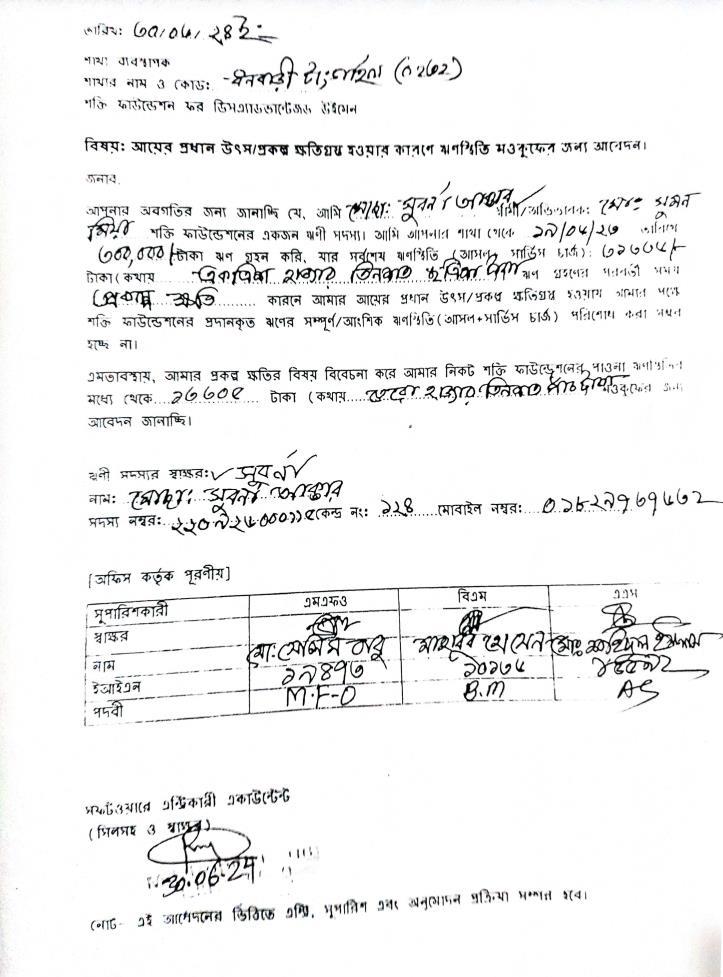 তারিখ: ৩০/০৬/২৪ ইং
শাখা ব্যবস্থাপক
শাখার নাম ও কোড: ধনবাড়ী টাংগাইল (০২৬২)
শক্তি ফাউন্ডেশন ফর ডিসএ্যাডভান্টেজড উইমেন
বিষয়: আয়ের প্রধান উৎস/প্রকল্প ক্ষতিগ্রস্থ হওয়ার কারণে ঋণস্থিতি মওকুফের জন্য আবেদন।
জনাব,
আপনার অবগতির জন্য জানাচ্ছি যে, আমি মোছা: সুবর্না আক্তার স্বামী/অভিভাবক: মো: সুমন
মিয়া শক্তি ফাউন্ডেশনের একজন ঋণী সদস্য। আমি আপনার শাখা থেকে তারিখে
টাকা ঋণ গ্রহন করি, যার সর্বশেষ ঋণস্থিতি (আসল+সার্ভিস চার্জ):
টাকা (কথায় হাজার তিনশত ঋণ গ্রহণের পরবর্তী সময়
প্রকল্প ক্ষতি কারনে আমার আয়ের প্রধান উৎস/প্রকল্প ক্ষতিগ্রস্থ হওয়ায় আমার পক্ষে
শক্তি ফাউন্ডেশনের প্রদানকৃত ঋণের সম্পূর্ণ/আংশিক ঋণস্থিতি (আসল+সার্ভিস চার্জ) পরিশোধ করা সম্ভব
হচ্ছে না।
এমতাবস্থায়, আমার প্রকল্প ক্ষতির বিষয় বিবেচনা করে আমার নিকট শক্তি ফাউন্ডেশনের পাওনা ঋণস্থিতির
মধ্যে থেকে ১৩৩০৫ টাকা (কথায় তেরো হাজার তিনশত পাঁচ টাকা মওকুফের জন্য
আবেদন জানাচ্ছি।
ঋণী সদস্যার স্বাক্ষর: সুবর্না
নাম: মোছা: সুবর্না আক্তার
সদস্য নম্বর: কেন্দ্র নং: ১২৪ মোবাইল নম্বর:
[অফিস কর্তৃক পূরণীয়]
সুপারিশকারী এমএফও বিএম এএম
স্বাক্ষর
নাম মো: সেলিম বাবু মাহাবুব হোসেন মোঃ শহিদুল ইসলাম
ইআইএন ১৯৪৭৩ ১০১৭৫
পদবী M.F-O B.M AS
সফটওয়ারে এন্ট্রিকারী একাউন্টেন্ট
(সিলসহ ও স্বাক্ষর)
30.06.24
নোট- এই আবেদনের ভিত্তিতে এন্ট্রি, সুপারিশ এবং অনুমোদন প্রক্রিয়া সম্পন্ন হবে।